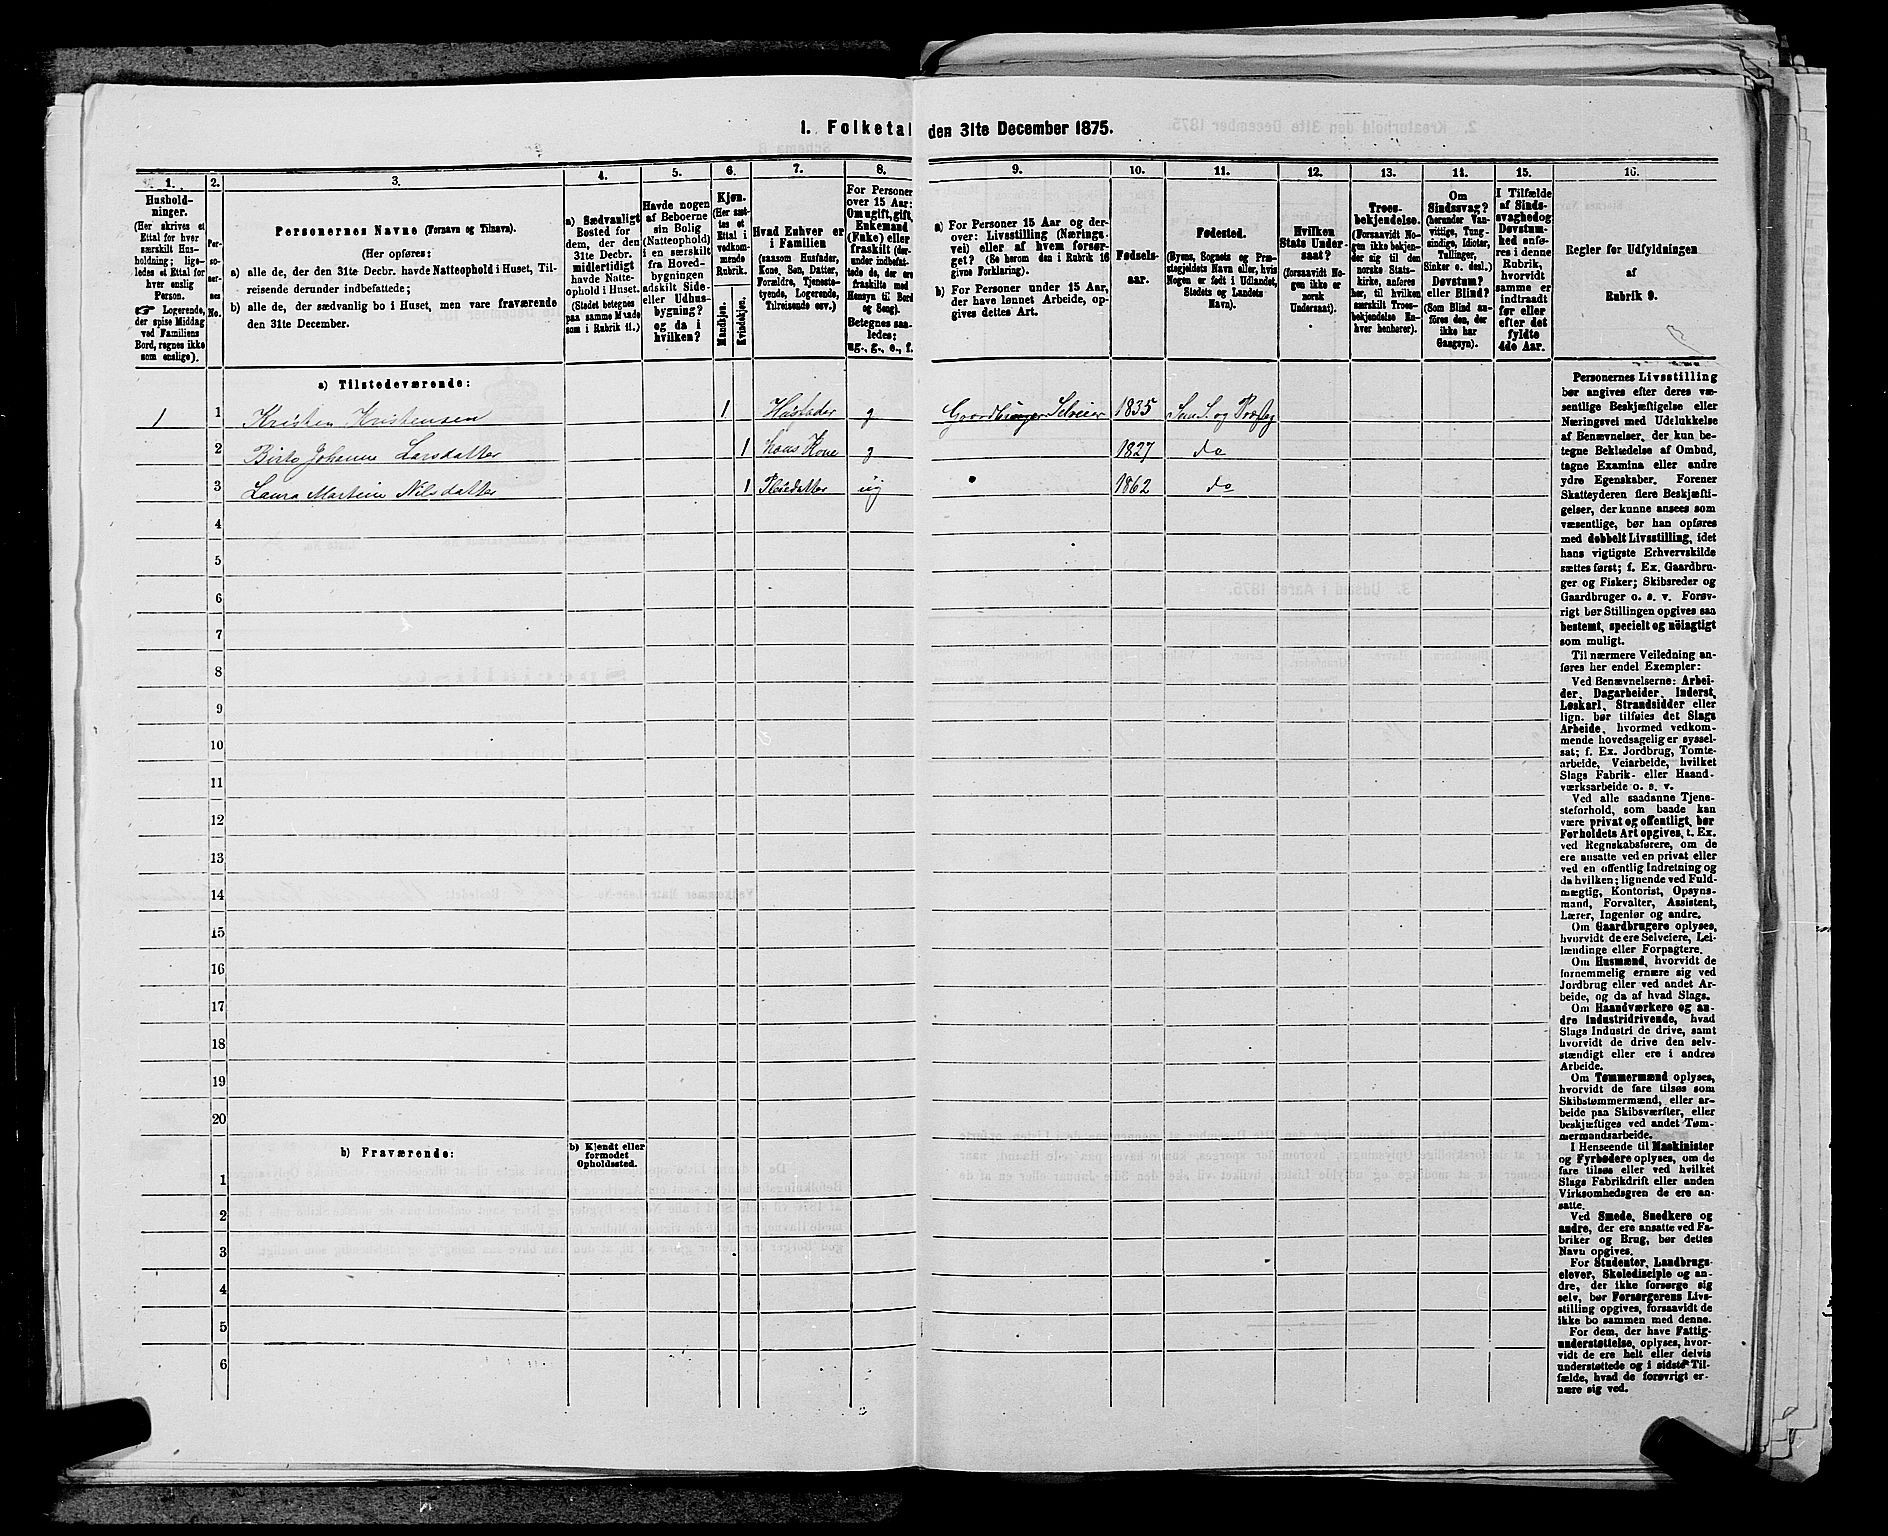 1. Folketal den 31te December 1875.
1. 2. 3. 4. 5. 6. 7. 8. 9. 10. 11. 12. 13. 14. 15. 16.
Hushold-
ninger.
(Her skrives et
Ettal for hver
særskilt Hus-
holdning; lige-
ledes et Ettal for
hver enslig
Person.
☛ Logerende,
der spise Middag
ved Familiens
Bord, regnes ikke
som enslige).
Per-
soner-
nes
No.
Personernes Navne (Fornavn og Tilnavn).
(Her opføres:
a) alle de, der den 31te Decbr. havde Natteophold i Huset, Til-
reisende derunder indbefattede;
b) alle de, der sædvanlig bo i Huset, men vare fraværende
den 31te December.
a) Sædvanligt
Bosted for
dem, der den
31te Decbr.
midlertidigt
havde Natte-
ophold i Huset.
(Stedet betegnes
paa samme Maade
som i Rubrik 11.)
Havde nogen
af Beboerne
sin Bolig
(Natteophold)
i en særskilt
fra Hoved-
bygningen
adskilt Side-
eller Udhus-
bygning?
og da i
hvilken?
Kjøn.
(Her sæt-
tes et
Ettal i
vedkom-
mende
Rubrik.
Mandkjøn.
Kvindekjøn.
Hvad Enhver er
i Familien
(saasom Husfader,
Kone, Søn, Datter,
Forældre, Tjeneste-
tyende, Logerende,
Tilreisende osv.)
For Personer
over 15 Aar:
Om ugift, gift,
Enkemand
(Enke) eller
fraskilt (der-
under indbefat-
tede de, der ere
fraskilte med
Hensyn til Bord
og Seng).
Betegnes saa-
ledes:
ug., g., e., f.
a) For Personer 15 Aar og der-
over: Livsstilling (Nærings-
vei) eller af hvem forsør-
get? (Se herom den i Rubrik 16
givne Forklaring).
b) For Personer under 15 Aar,
der have lønnet Arbeide, op-
gives dettes Art.
Fødsels-
aar.
Fødested.
(Byens, Sognets og Præ-
stegjeldets Navn eller, hvis
Nogen er født i Udlandet,
Stedets og Landets
Navn).
Hvilken
Stats Under-
saat?
(forsaavidt No-
gen ikke er
norsk
Undersaat).
Troes-
bekjendelse.
(Forsaavidt No-
gen ikke bekjen-
der sig til den
norske Stats-
kirke, anføres
her, til hvilken
særskilt Troes-
bekjendelse En-
hver henhører).
Om
Sindssvag?
(herunder Van-
vittige, Tung-
sindige, Idioter,
Tullinger,
Sinker o. desl.)
Døvstum?
eller Blind?
(Som Blind an-
føres den, der
ikke har
Gangsyn).
I Tilfælde
af Sinds-
svaghed og
Døvstum-
hed anfø-
res i denne
Rubrik,
hvorvidt
samme er
indtraadt
før eller
efter det
fyldte
4de Aar.
Regler for Udfyldningen
af
Rubrik 9.
a) Tilstedeværende:
1 1 Kristen Kristensen 1 Husfader g Gaardbruger Selveier 1835 Sm S. og Præstg
2 Birte Johanne Larsdatter 1 hans Kone g 1827 do
3 Laura Martein Nilsdatter 1 Pleiedatter ug 1862 do
4
5
6
7
8
9
10
11
12
13
14
15
16
17
18
19
20
b) Fraværende:
b) Kjendt eller
formodet
Opholdssted.
1
2
3
4
5
6
Personernes Livsstilling
bør angives efter deres væ-
sentlige Beskjæftigelse eller
Næringsvei med Udelukkelse
af Benævnelser, der kun be-
tegne Beklædelse af Ombud,
tagne Examina eller andre
ydre Egenskaber. Forener
Skatteyderen flere Beskjæfti-
gelser, der kunne ansees som
væsentlige, bør han opføres
med dobbelt Livsstilling, idet
hans vigtigste Erhvervskilde
sættes først; f. Ex. Gaardbru-
ger og Fisker; Skibsreder og
Gaardbruger o. s. v. Forøv-
rigt bør Stillingen opgives saa
bestemt, specielt og nøiagtigt
som muligt.
Til nærmere Veiledning an-
føres her endel Exempler:
Ved Benævnelserne: Arbei-
der, Dagarbeider, Inderst,
Løskarl, Strandsidder eller
lign. bør tilføies det Slags
Arbeide, hvormed vedkom-
mende hovedsagelig er syssel-
sat; f. Ex. Jordbrug, Tomte-
arbeide, Veiarbeide, hvilket
Slags Fabrik- eller Haand-
værksarbeide o. s. v.
Ved alle saadanne Tjene-
steforhold, som baade kan
være privat og offentligt, bør
Forholdets Art opgives, t. Ex.
ved Regnskabsførere, om de
ere ansatte ved en privat eller
ved en offentlig Indretning og
da hvilken; lignende ved Fuld-
mægtig, Kontorist, Opsyns-
mand, Forvalter, Assistent,
Lærer, Ingeniør og andre.
Om Gaardbrugere oplyses,
hvorvidt de ere Selveiere, Lei-
lændinge eller Forpagtere.
Om Husmænd, hvorvidt de
fornemmelig ernære sig ved
Jordbrug eller ved andet Ar-
beide, og da af hvad Slags.
Om Haandværkere og an-
dre Industridrivende, hvad
Slags Industri de drive, samt
hvorvidt de drive den selv-
stændigt eller ere i andres
Arbeide.
Om Tømmermænd oplyses,
hvorvidt de fare tilsøs som
Skibstømmermænd, eller ar-
beide paa Skibsværfter, eller
beskjæftiges ved andet Tøm-
mermandsarbeide.
I Henseende til Maskinister
og Fyrbødere oplyses, om de
fare tilsøs eller ved hvilket
Slags Fabrikdrift eller anden
Virksomhedsgren de ere an-
satte.
Ved Smede, Snedkere og
andre, der ere ansatte ved Fa-
briker og Brug, bør dettes
Navn opgives.
For Studenter, Landbrugs-
elever, Skoledisciple og an-
dre, der ikke forsørge sig
selv, bør Forsørgerens Livs-
stilling opgives, forsaavidt de
ikke bo sammen med denne.
For dem, der have Fattig-
understøttelse, oplyses, hvor-
vidt de ere helt eller delvis
understøttede og i sidste Til-
fælde, hvad de forøvrigt er-
nære sig ved.